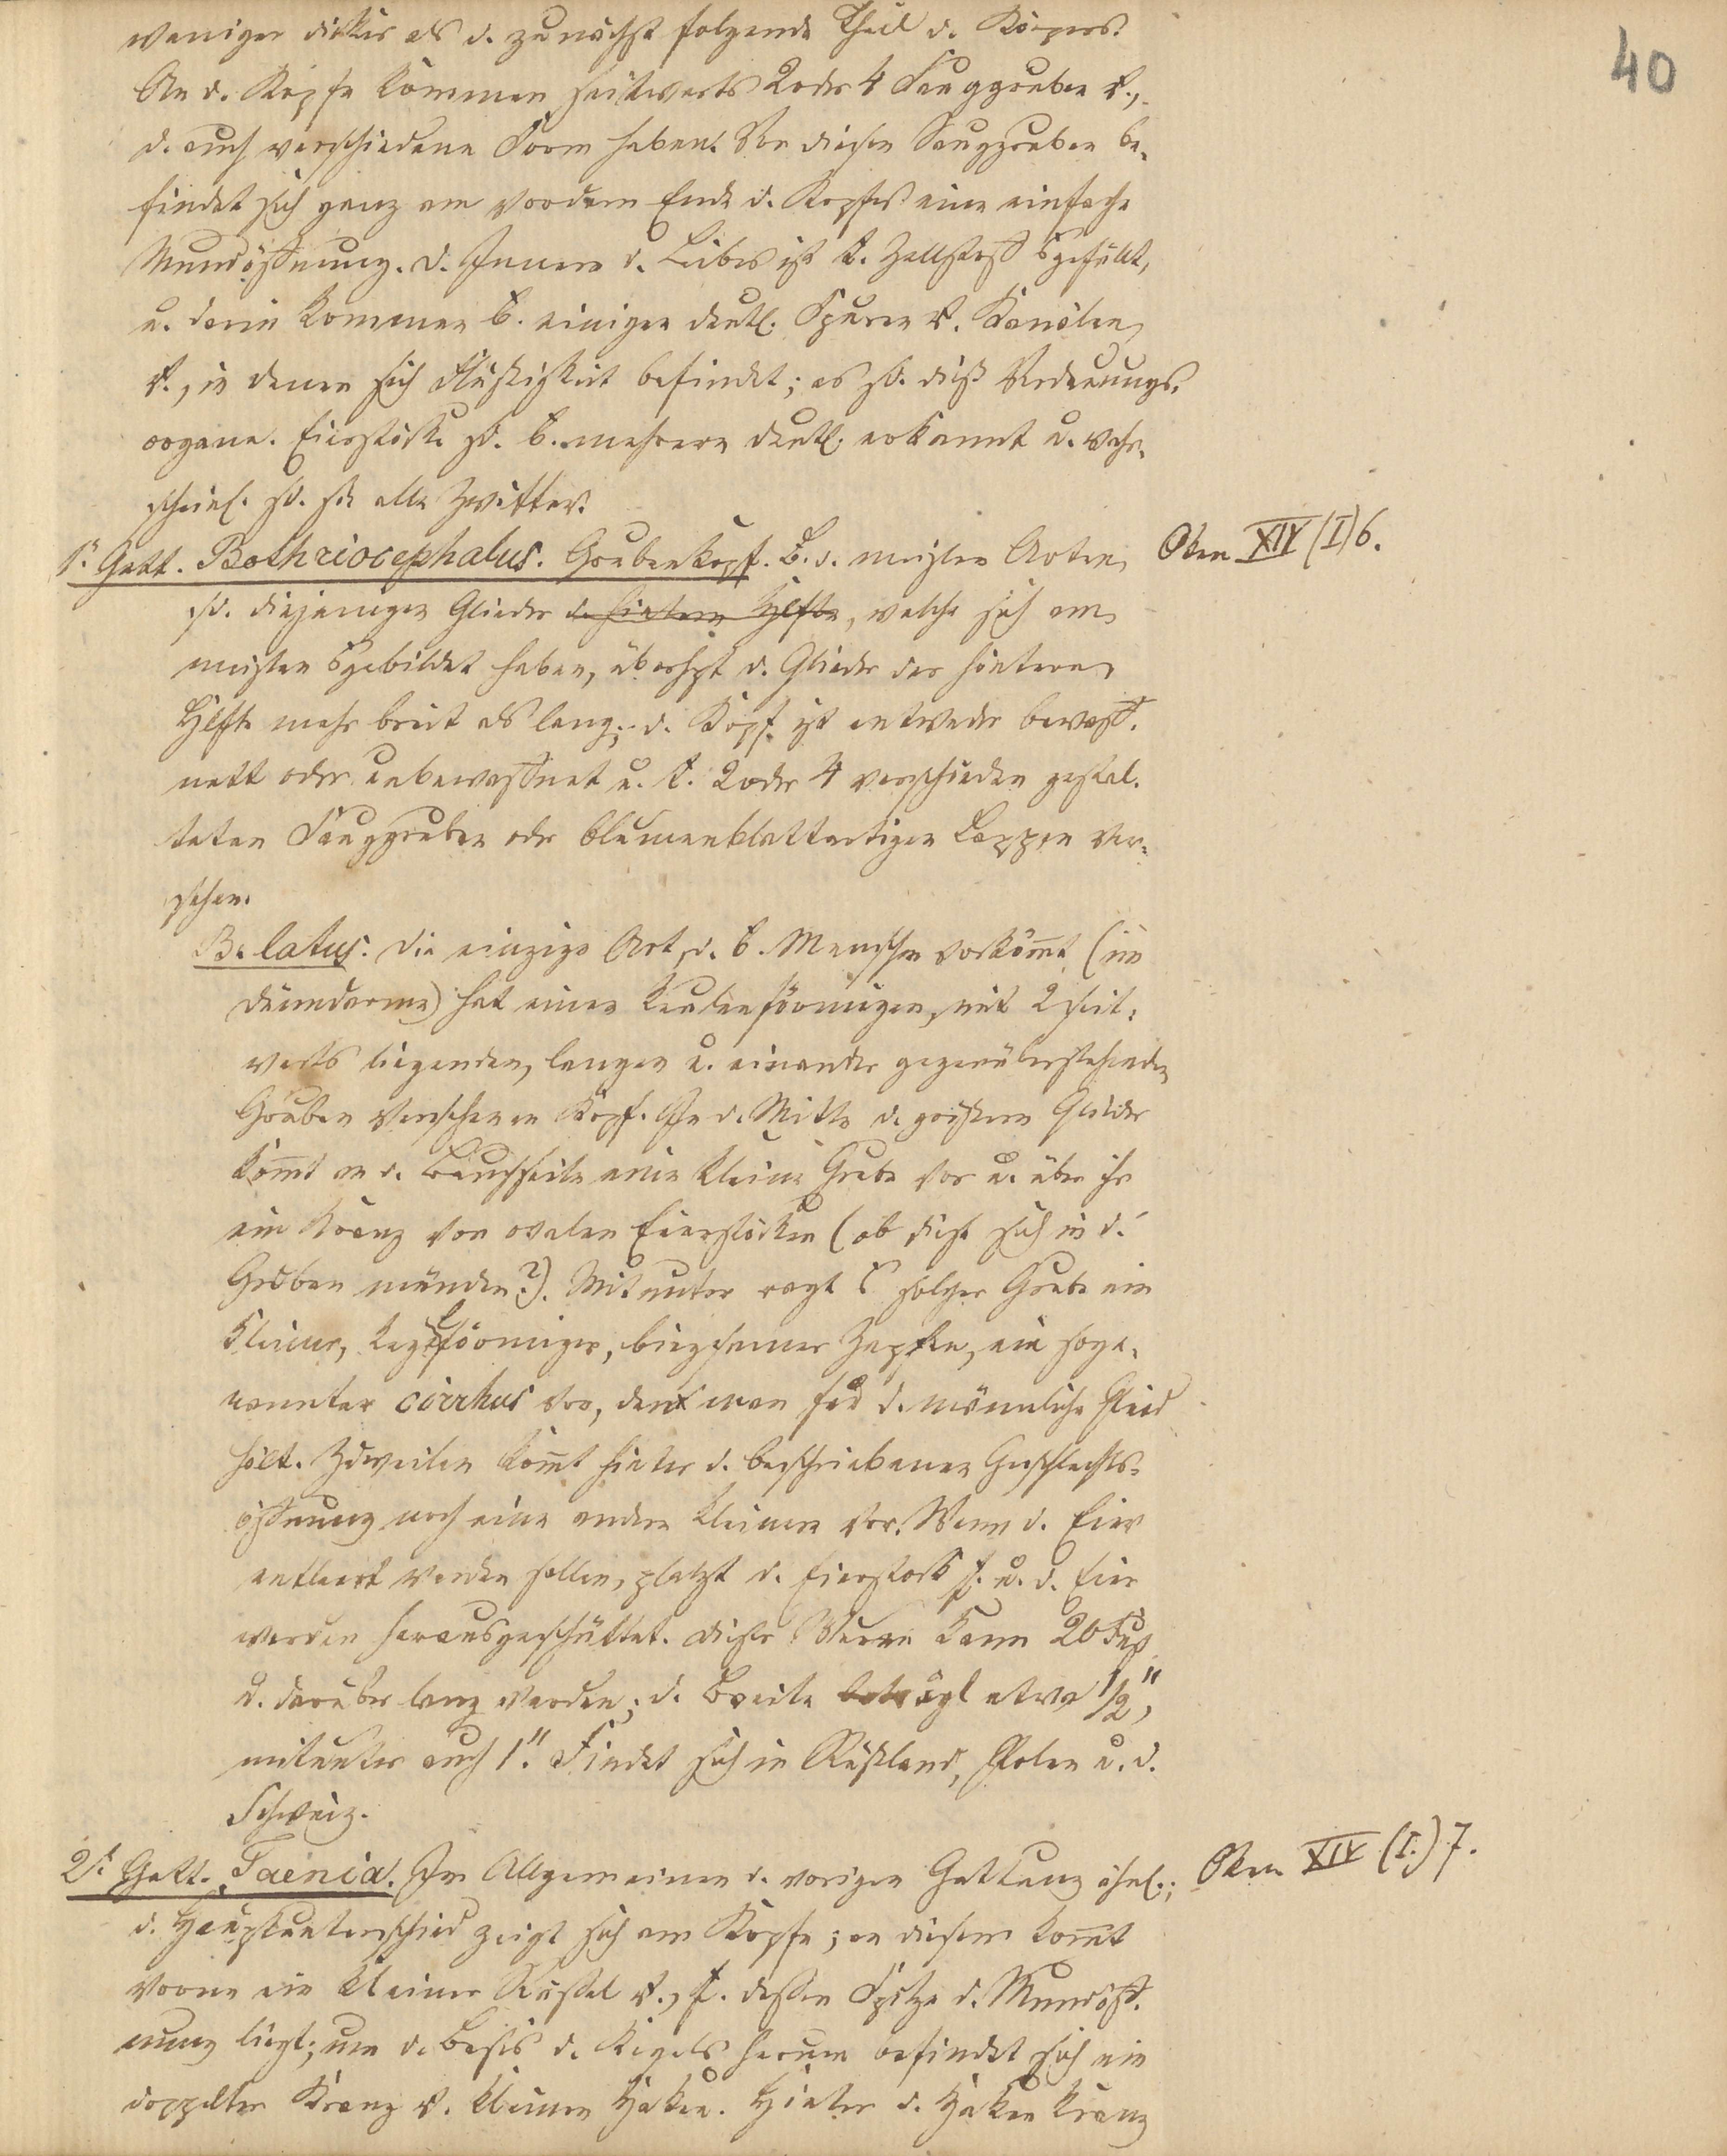 40
weniger dicker als d. zunächst folgende Theil d. Körpers.
An d. Kopfe kommen seitwerts 2 oder 4 Sauggruben v.,
d. auch verschiedene Form haben. Vor diesen Sauggruben be-
findet sich ganz am vordern Ende d. Kopfes eine einfache
Mundöffnung. D. Innere d. Leibes ist t. Zellstoff gefüllt,
u. darin kommen b. einigen deutl. Spuren v. Kanälen
v., in denen sich Flüssigkeit befindet; es sd. dieß Verdauungs-
organe. Eierstöcke sd. b. mehrern deutl. erkannt u. wahr-
scheinl. sd. sie alle Zwitter.
1e Gatt. Bothriocephalus. Grubenkopf. B. d. meisten Arten
sd. diejenigen Glieder d. hintern Hlfte, welche sich am
meisten gebildet haben, überhpt d. Glieder der hintern
Hlfte mehr breit als lang; d. Kopf ist entweder bewaff-
nett oder unbewaffnet u. t. 2 oder 4 verschieden gestal-
teten Sauggruben oder blumenblattartigen Lappen ver-
sehen.
Oken XIV (I) 6.
B. latus. Die einzige Art, d. b. Menschen vorkömt (im
Dünndarme) hat einen keulenförmigen, mit 2 seit-
werts liegenden, langen u. einander gegenüberstehenden
Gruben versehenen Kopf. In d. Mitte d. größern Glieder
kömt an d. Bauchseite eine kleine Grube vor u. über ihr
ein Kranz von ovalen Eierstöcken (ob diese sich in d.
Gruben münden?). Mitunter ragt solcher Grube ein
kleiner, kegelförmiger, biegsamer Zapfen, ein soge-
nannter cirrhus vor, den man für d. männliche Glied
hält. Zuweilen kömt hinter d. beschriebenen Geschlechts-
öffnung noch eine andre kleinere vor. Wenn d. Eier
entleert werden sollen, platzt d. Eierstock u. d. Eier
werden herausgeschüttet. Dieser Wurm kann 20 Fuß
u. darüber lang werden; d. Breite beträgt etwa 1/2",
mitunter auch 1". Findet sich in Rußland, Polen u. d.
Schweiz.
2e Gatt. Taenia. Im Allgemeinen d. vorigen Gattung ähnl.;
Oken XIV (I.) 7.
d. Hauptunterschied zeigt sich am Kopfe; an diesem kömt
vorne ein kleiner Rüssel v., t. dessen Spitze d. Mundöff-
nung liegt; um d. Basis d. Kegels herum befindet sich ein
doppelter Kranz v. kleinen Haken. Hinter d. Hakenkranz